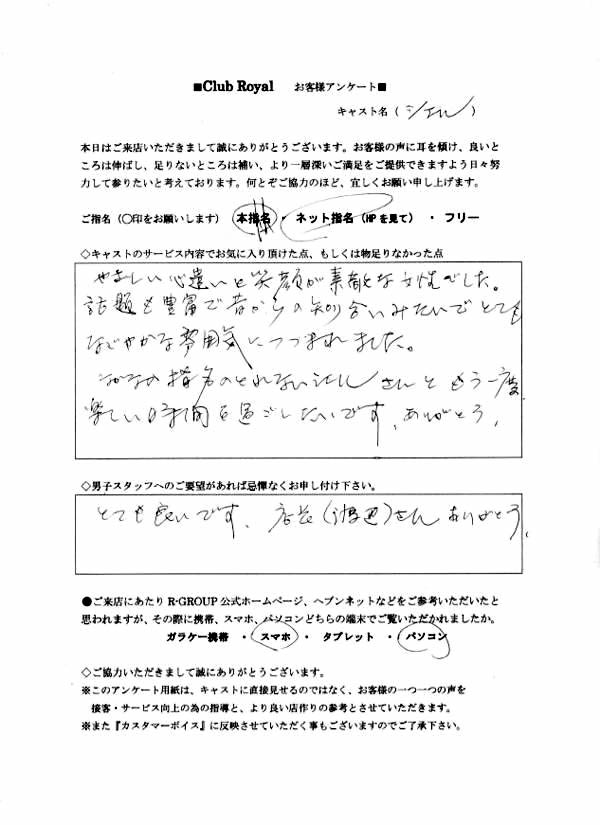 ■Club Royal お客様アンケート■
キャスト名 ( シエル )
本日はご来店いただきまして誠にありがとうございます。お客様の声に耳を傾け、良いと
ころは伸ばし、足りないところは補い、より一層深いご満足をご提供できますよう日々努
力して参りたいと考えております。何とぞご協力のほど、宜しくお願い申し上げます。
ご指名（〇印をお願いします） 本指名 ・ ネット指名（HPを見て） ・ フリー
◇キャストのサービス内容でお気に入り頂けた点、もしくは物足りなかった点
やさしい心遣いと笑顔が素敵な女性でした。
話題も豊富で昔からの知り合いみたいでとても
なごやかな雰囲気につつまれました。
なかなか指名のとれないシエルさんともう一度
楽しい時間を過ごしたいです、ありがとう、
◇男子スタッフへのご要望があれば忌憚なくお申し付け下さい。
とても良いです、店長(渡辺)さんありがとう、
●ご来店にあたり R-GROUP 公式ホームページ、ヘブンネットなどをご参考いただいたと
思われますが、その際に携帯、スマホ、パソコンどちらの端末でご覧いただかれましたか。
ガラケー携帯 ・ スマホ ・ タブレット ・ パソコン
◇ご協力いただきまして誠にありがとうございます。
※このアンケート用紙は、キャストに直接見せるのではなく、お客様の一つ一つの声を
接客・サービス向上の為の指導と、より良い店作りの参考とさせていただきます。
※また『カスタマーボイス』に反映させていただく事もございますのでご了承下さい。